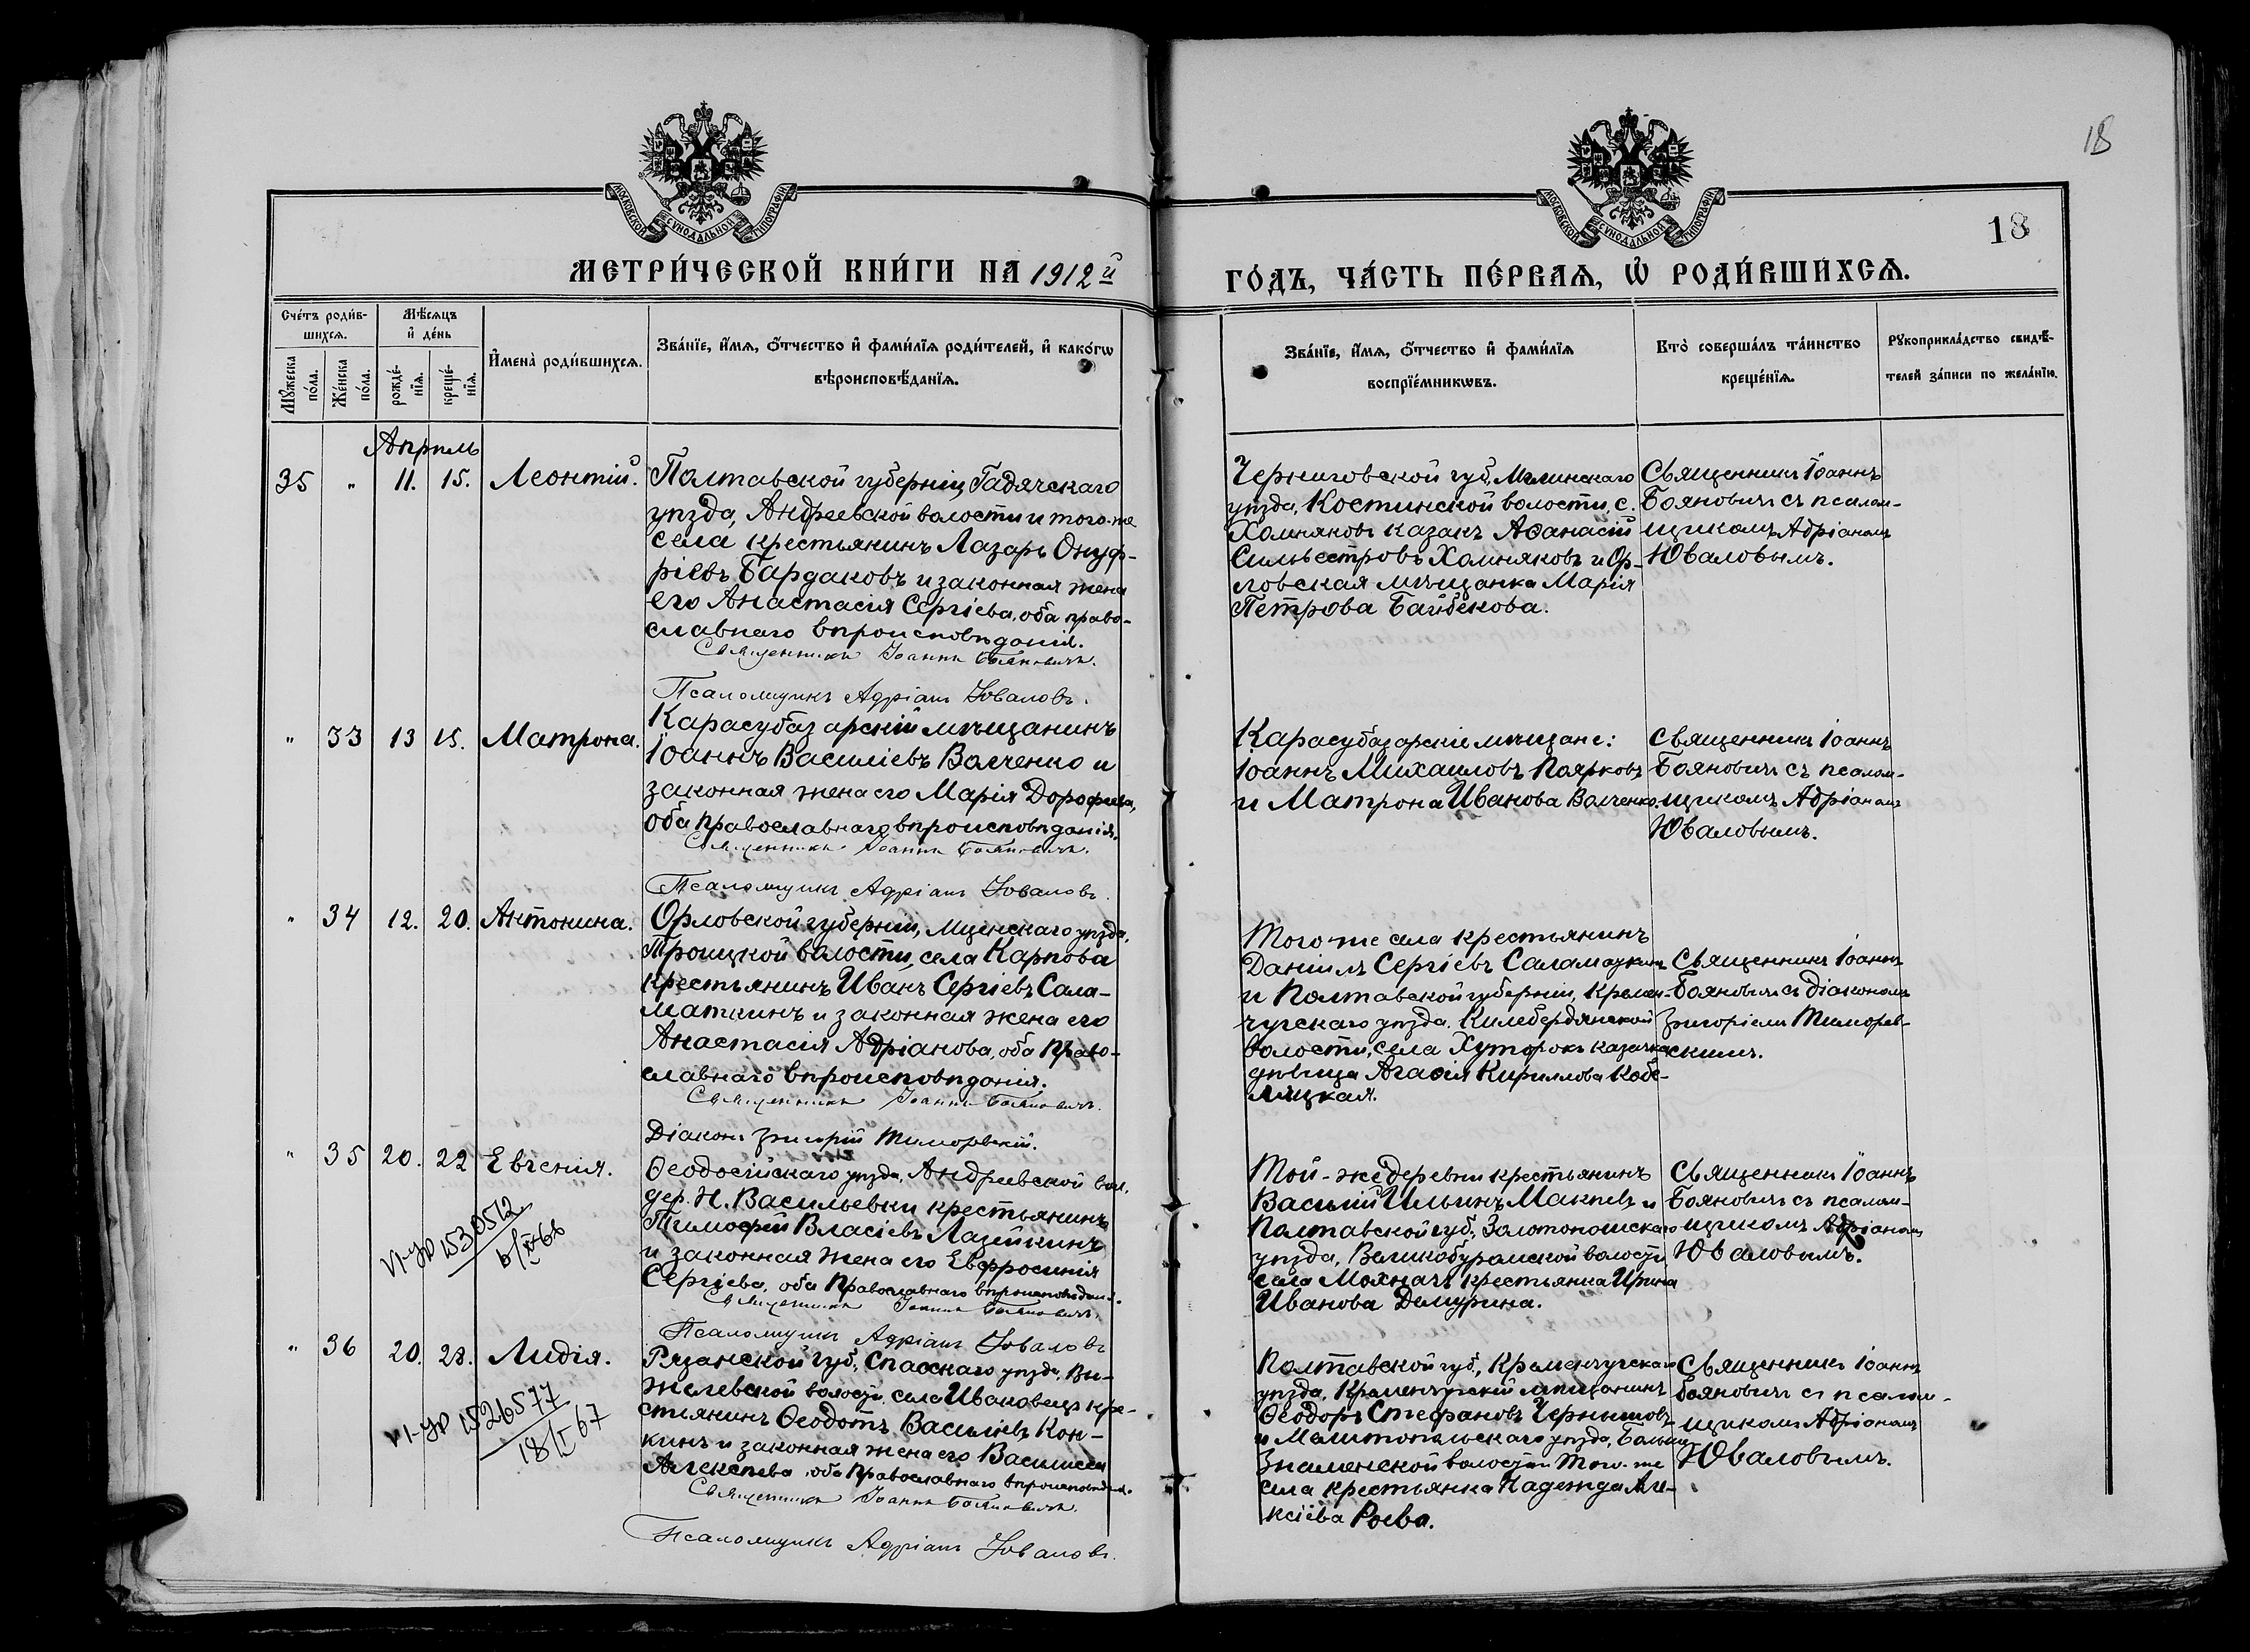 18
МОСКОВСКОЙ СѴНОДАЛЬНОЙ ТИПОГРАФІИ
МОСКОВСКОЙ СѴНОДАЛЬНОЙ ТИПОГРАФІИ
18
МЕТРИ́ЧЕСКОЙ КНИ́ГИ НА 1912й
ГО́ДЪ, ЧА́СТЬ ПЕ́РВАѦ, Ѡ РОДИ́ВШИХСѦ.
Сче́тъ роди́в-
шихсѧ.
Мꙋжеска по́ла.
Же́нска по́ла.
Мѣ́сѧцъ
и҆ де́нь
рожде́-
нїѧ.
креще́-
нїѧ.
И҆мена̀ роди́вшихсѧ.
Зва́нїе, и҆́мѧ, ѻ҆́тчество и҆ фами́лїѧ роди́телей, и҆ како́гѡ
вѣроисповѣ́данїѧ.
Зва́нїе, и҆́мѧ, ѻ҆́тчество и҆ фами́лїѧ
воспрїе́мникѡвъ.
Кто̀ соверша́лъ та́инство
креще́нїѧ.
Рꙋкоприкла́дство свидѣ́-
телей за́писи по жела́нїю.
Апрѣль
35 " 11. 15. Леонтій.
Полтавской губерніи, Гадячскаго
уѣзда, Андреевской волости и того-же
села крестьянинъ Лазарь Онуф-
ріевъ Бардаковъ и законная жена
его Анастасія Сергіева, оба право-
славнаго вѣроисповѣданія.
Священникъ Іоаннъ Бояновичъ.
Псаломщикъ Адріанъ Юваловъ.
Черниговской губ., Мглинскаго
уѣзда, Костинской волости, с.
Хомяковъ казакъ Аѳанасій
Сильвестровъ Хомяковъ и Ор-
ловская мѣщанка Марія
Петрова Байбекова.
Священникъ Іоаннъ
Бояновичъ съ псалом-
щикомъ Адріаномъ
Юваловымъ.
" 33 13 15. Матрона.
Карасубазарскій мѣщанинъ
Іоаннъ Василіевъ Волченко и
законная жена его Марія Дорофѣева,
оба православнаго вѣроисповѣданія.
Священникъ Іоаннъ Бояновичъ.
Псаломщикъ Адріанъ Юваловъ.
Карасубазарскіе мѣщане:
Іоаннъ Михаиловъ Поярковъ
и Матрона Иванова Волченко.
Священникъ Іоаннъ
Бояновичъ съ псалом-
щикомъ Адріаномъ
Юваловымъ.
" 34 12. 20. Антонина.
Орловской губерніи, Мценскаго уѣзда,
Троицкой волости, села Карпова
крестьянинъ Иванъ Сергіевъ Сала-
маткинъ и законная жена его
Анастасія Адріанова, оба право-
славнаго вѣроисповѣданія.
Священникъ Іоаннъ Бояновичъ.
Діаконъ Григорій Тиморевскій.
Того-же села крестьянинъ
Даніилъ Сергіевъ Саламаткинъ
и Полтавской губерніи, Кремен-
чугскаго уѣзда, Килебердянской
волости, села Хуторокъ казачка
дѣвица Агаѳія Кириллова Кобе-
ляцкая.
Священникъ Іоаннъ
Бояновичъ съ діакономъ
Григоріемъ Тиморев-
скимъ.
" 35 20. 22 Евгенія.
Ѳеодосійскаго уѣзда, Андреевской вол.
дер. Н. Васильевки крестьянинъ
Тимоѳей Власіевъ Лазейкинъ
и законная жена его Евфросинія
Сергіева, оба православнаго вѣроисповѣданія.
Священникъ Іоаннъ Бояновичъ.
Псаломщикъ Адріанъ Юваловъ
VI-УР 1530512
Той-же деревни крестьянинъ
Василій Ильинъ Макѣевъ и
Полтавской губ., Золотоношскаго
уѣзда, Великобуромской волости
села Мохначъ крестьянка Ирина
Иванова Демурина.
Священникъ Іоаннъ
Бояновичъ съ псалом-
щикомъ Адріаномъ
Юваловымъ.
" 36 20. 28. Лидія.
Рязанской губ., Спасскаго уѣзда, Ви-
желевской волости, села Ивановецъ кре-
стьянинъ Ѳеодотъ Василіевъ Кон-
кинъ и законная жена его Василисса
Алексѣева, оба православнаго вѣроисповѣданія.
Священникъ Іоаннъ Бояновичъ.
Псаломщикъ Адріанъ Юваловъ.
VI-УР 1526577
18/I 67
Полтавской губ., Кременчугскаго
уѣзда, Кременчугскій мѣщанинъ
Ѳеодоръ Стефановъ Чернышовъ
и Мелитопольскаго уѣзда, Больше
Знаменской волости того-же
села крестьянка Надежда Але-
ксіева Роева.
Священникъ Іоаннъ
Бояновичъ съ псалом-
щикомъ Адріаномъ
Юваловымъ.